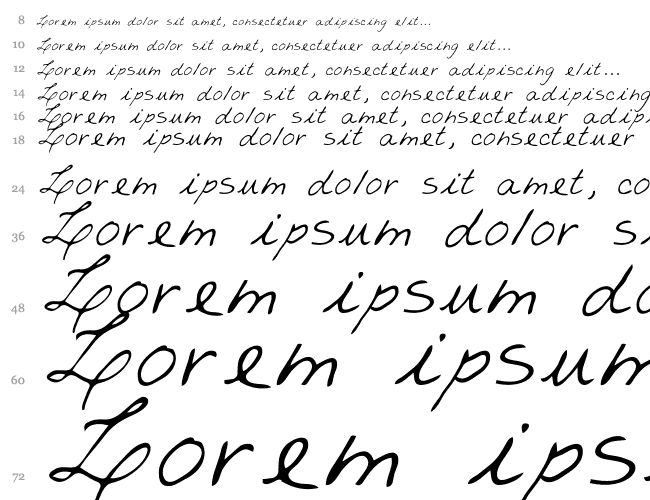 8 Lorem ipsum dolor sit amet, consectetuer adipiscing elit...
10 Lorem ipsum dolor sit amet, consectetuer adipiscing elit...
12 Lorem ipsum dolor sit amet, consectetuer adipiscing elit...
14 Lorem ipsum dolor sit amet, consectetuer adipiscing
16 Lorem ipsum dolor sit amet, consectetuer adipi
18 Lorem ipsum dolor sit amet, consectetuer
24 Lorem ipsum dolor sit amet, co
36 Lorem ipsum dolor si
48 Lorem ipsum do
60 Lorem ipsum
72 Lorem ips